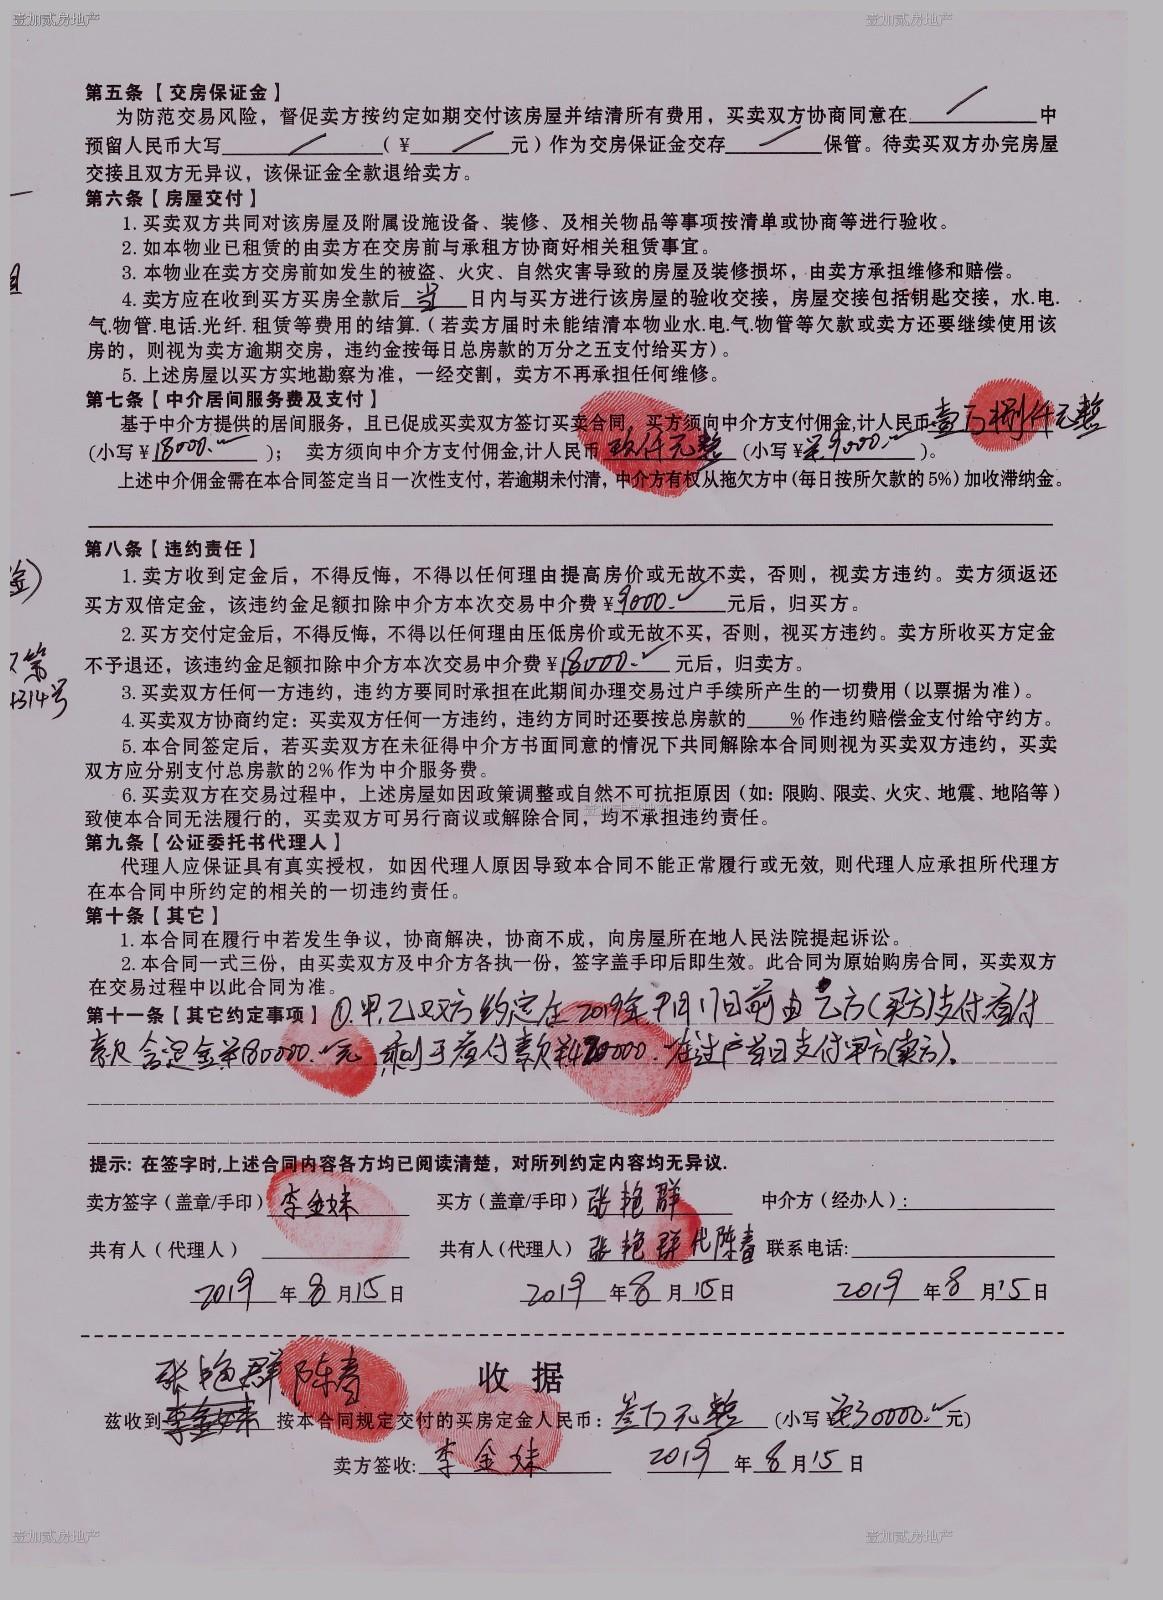 壹加贰房地产 壹加贰房地产
第五条【交房保证金】
为防范交易风险，督促卖方按约定如期交付该房屋并结清所有费用，买卖双方协商同意在 / 中
预留人民币大写 / （¥ / 元）作为交房保证金交存 / 保管。待卖买双方办完房屋
交接且双方无异议，该保证金全款退给卖方。
第六条【房屋交付】
1.买卖双方共同对该房屋及附属设施设备、装修、及相关物品等事项按清单或协商等进行验收。
2.如本物业已租赁的由卖方在交房前与承租方协商好相关租赁事宜。
3.本物业在卖方交房前如发生的被盗、火灾、自然灾害导致的房屋及装修损坏，由卖方承担维修和赔偿。
4.卖方应在收到买方买房全款后 当 日内与买方进行该房屋的验收交接，房屋交接包括钥匙交接，水.电.
气.物管.电话.光纤.租赁等费用的结算.（若卖方届时未能结清本物业水.电.气.物管等欠款或卖方还要继续使用该
房的，则视为卖方逾期交房，违约金按每日总房款的万分之五支付给买方）。
5.上述房屋以买方实地勘察为准，一经交割，卖方不再承担任何维修。
第七条【中介居间服务费及支付】
基于中介方提供的居间服务，且已促成买卖双方签订买卖合同，买方须向中介方支付佣金,计人民币 壹万捌仟元整
(小写¥ 18000.- ）； 卖方须向中介方支付佣金,计人民币 玖仟元整 (小写¥ 9000.- )。
上述中介佣金需在本合同签定当日一次性支付，若逾期未付清，中介方有权从拖欠方中(每日按所欠款的5%)加收滞纳金。
第八条【违约责任】
1.卖方收到定金后，不得反悔，不得以任何理由提高房价或无故不卖，否则，视卖方违约。卖方须返还
买方双倍定金，该违约金足额扣除中介方本次交易中介费¥ 9000.- 元后，归买方。
金)
2.买方交付定金后，不得反悔，不得以任何理由压低房价或无故不买，否则，视买方违约。卖方所收买方定金
不予退还，该违约金足额扣除中介方本次交易中介费¥ 18000.- 元后，归卖方。
第
314号
3.买卖双方任何一方违约，违约方要同时承担在此期间办理交易过户手续所产生的一切费用（以票据为准）。
4.买卖双方协商约定：买卖双方任何一方违约，违约方同时还要按总房款的____%作违约赔偿金支付给守约方。
5.本合同签定后，若买卖双方在未征得中介方书面同意的情况下共同解除本合同则视为买卖双方违约，买卖
双方应分别支付总房款的2%作为中介服务费。
6.买卖双方在交易过程中，上述房屋如因政策调整或自然不可抗拒原因（如：限购、限卖、火灾、地震、地陷等）
壹加贰房地产
致使本合同无法履行的，买卖双方可另行商议或解除合同，均不承担违约责任。
第九条【公证委托书代理人】
代理人应保证具有真实授权，如因代理人原因导致本合同不能正常履行或无效,则代理人应承担所代理方
在本合同中所约定的相关的一切违约责任。
第十条【其它】
1.本合同在履行中若发生争议，协商解决，协商不成，向房屋所在地人民法院提起诉讼。
2.本合同一式三份，由买卖双方及中介方各执一份，签字盖手印后即生效。此合同为原始购房合同，买卖双方
在交易过程中以此合同为准。
第十一条【其它约定事项】①甲乙双方约定在2019年9月17日前由乙方(买方)支付首付
款含定金¥180000.-元 剩于首付款¥420000.-在过户当日支付甲方(卖方)。
提示：在签字时,上述合同内容各方均已阅读清楚，对所列约定内容均无异议.
卖方签字（盖章/手印） 李金妹 买方（盖章/手印） 张艳群 中介方（经办人）:
共有人（代理人） 共有人（代理人） 张艳群代陈春 联系电话:
2019 年 8 月 15 日 2019 年 8 月 15 日 2019 年 8 月 15 日
张艳群 陈春 收 据
兹收到 李金妹 按本合同规定交付的买房定金人民币： 叁万元整 (小写¥ 30000.- 元)
卖方签收: 李金妹 2019 年 8 月 15 日
壹加贰房地产 壹加贰房地产